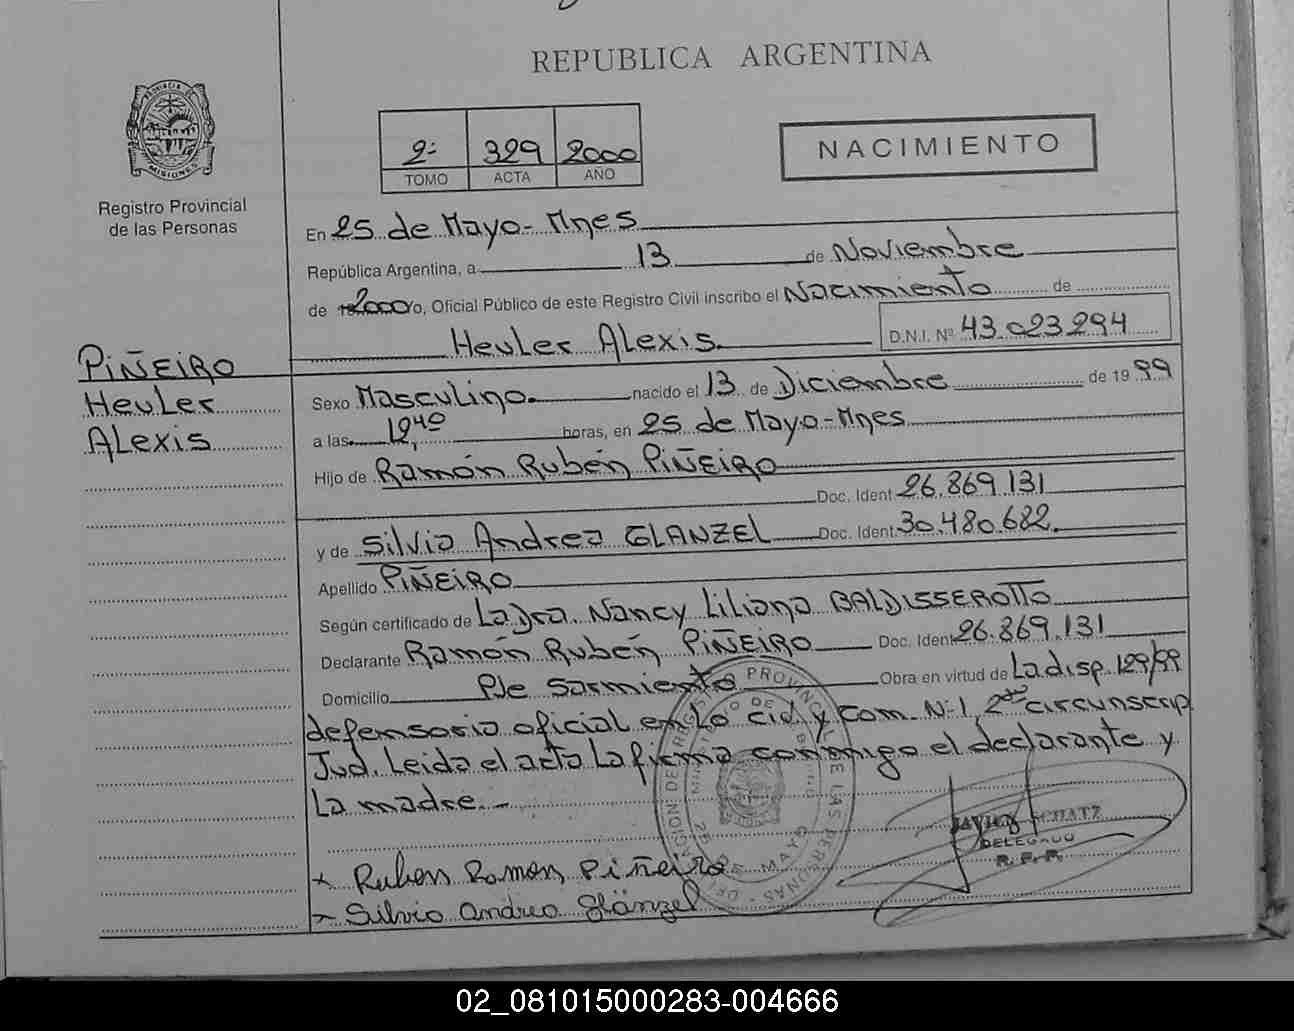 REPUBLICA ARGENTINA
PROVINCIA DE MISIONES
Registro Provincial
de las Personas
2º 329 2000
TOMO ACTA AÑO
NACIMIENTO
En 25 de Mayo - Mnes
República Argentina, a 13 de Noviembre
de 2000 yo, Oficial Público de este Registro Civil inscribo el Nacimiento de
Heuler Alexis. D.N.I. Nº 43.023.294
PIÑEIRO
Heuler
Alexis
Sexo Masculino. nacido el 13 de Diciembre de 1999
a las 12,40 horas, en 25 de Mayo - Mnes
Hijo de Ramón Rubén PIÑEIRO
Doc. Ident 26.869.131
y de Silvia Andrea GLANZEL Doc. Ident. 30.480.682.
Apellido PIÑEIRO
Según certificado de La Dra. Nancy Liliana BALDISSEROTTO
Declarante Ramón Rubén PIÑEIRO Doc. Ident 26.869.131
Domicilio Pje Sarmiento Obra en virtud de La disp. 129/99
defensoria oficial en Lo Civil y Com. Nº 1, 2da circunscrip
Jud. Leida el acta La firma conmigo el declarante y
La madre. -
JAVIER SCHATZ
DELEGADO
R. P. P.
x Ruben Ramon Piñeiro
x Silvia Andrea Glänzel
02_081015000283-004666